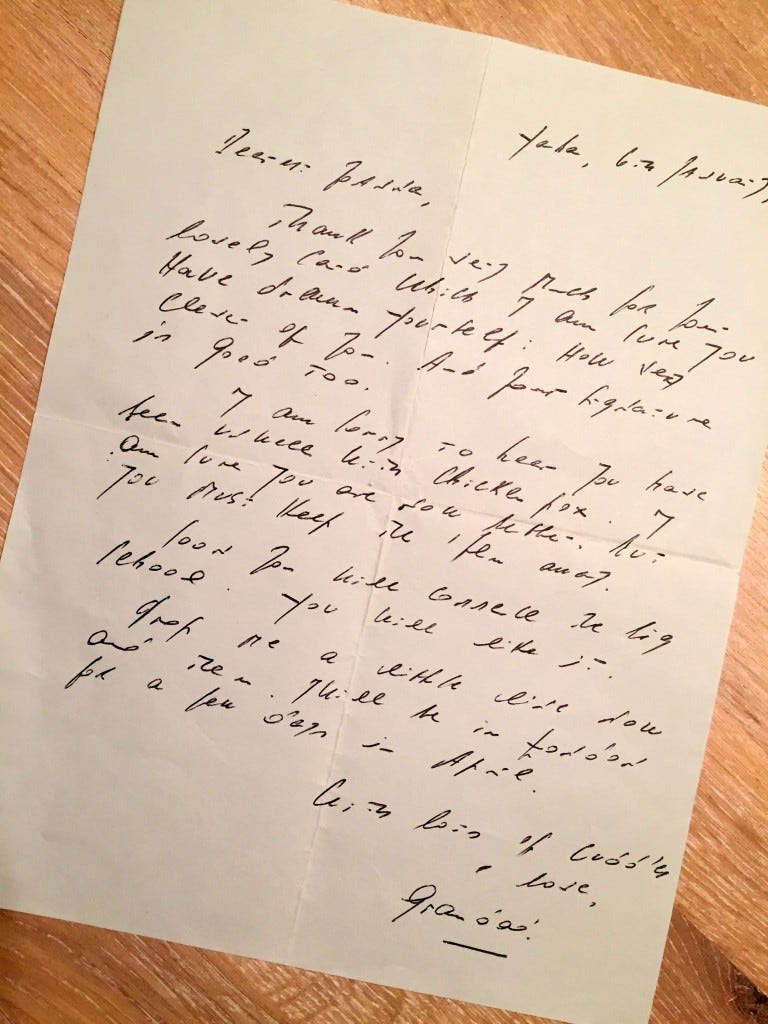 6th January,
Dearest
Thank you very much for your
lovely card which I am sure you
have drawn yourself: How very
clever of you. And your signature
is good too.
I am sorry to hear you have
been unwell with chicken pox. I
am sure you are now better. But
you must keep the item away.
Soon you will commence the big
school. You will like it.
Drop me a little line now
and then. I will be in London
for a few days in April.
With lots of cuddles
& love,
Grandad.